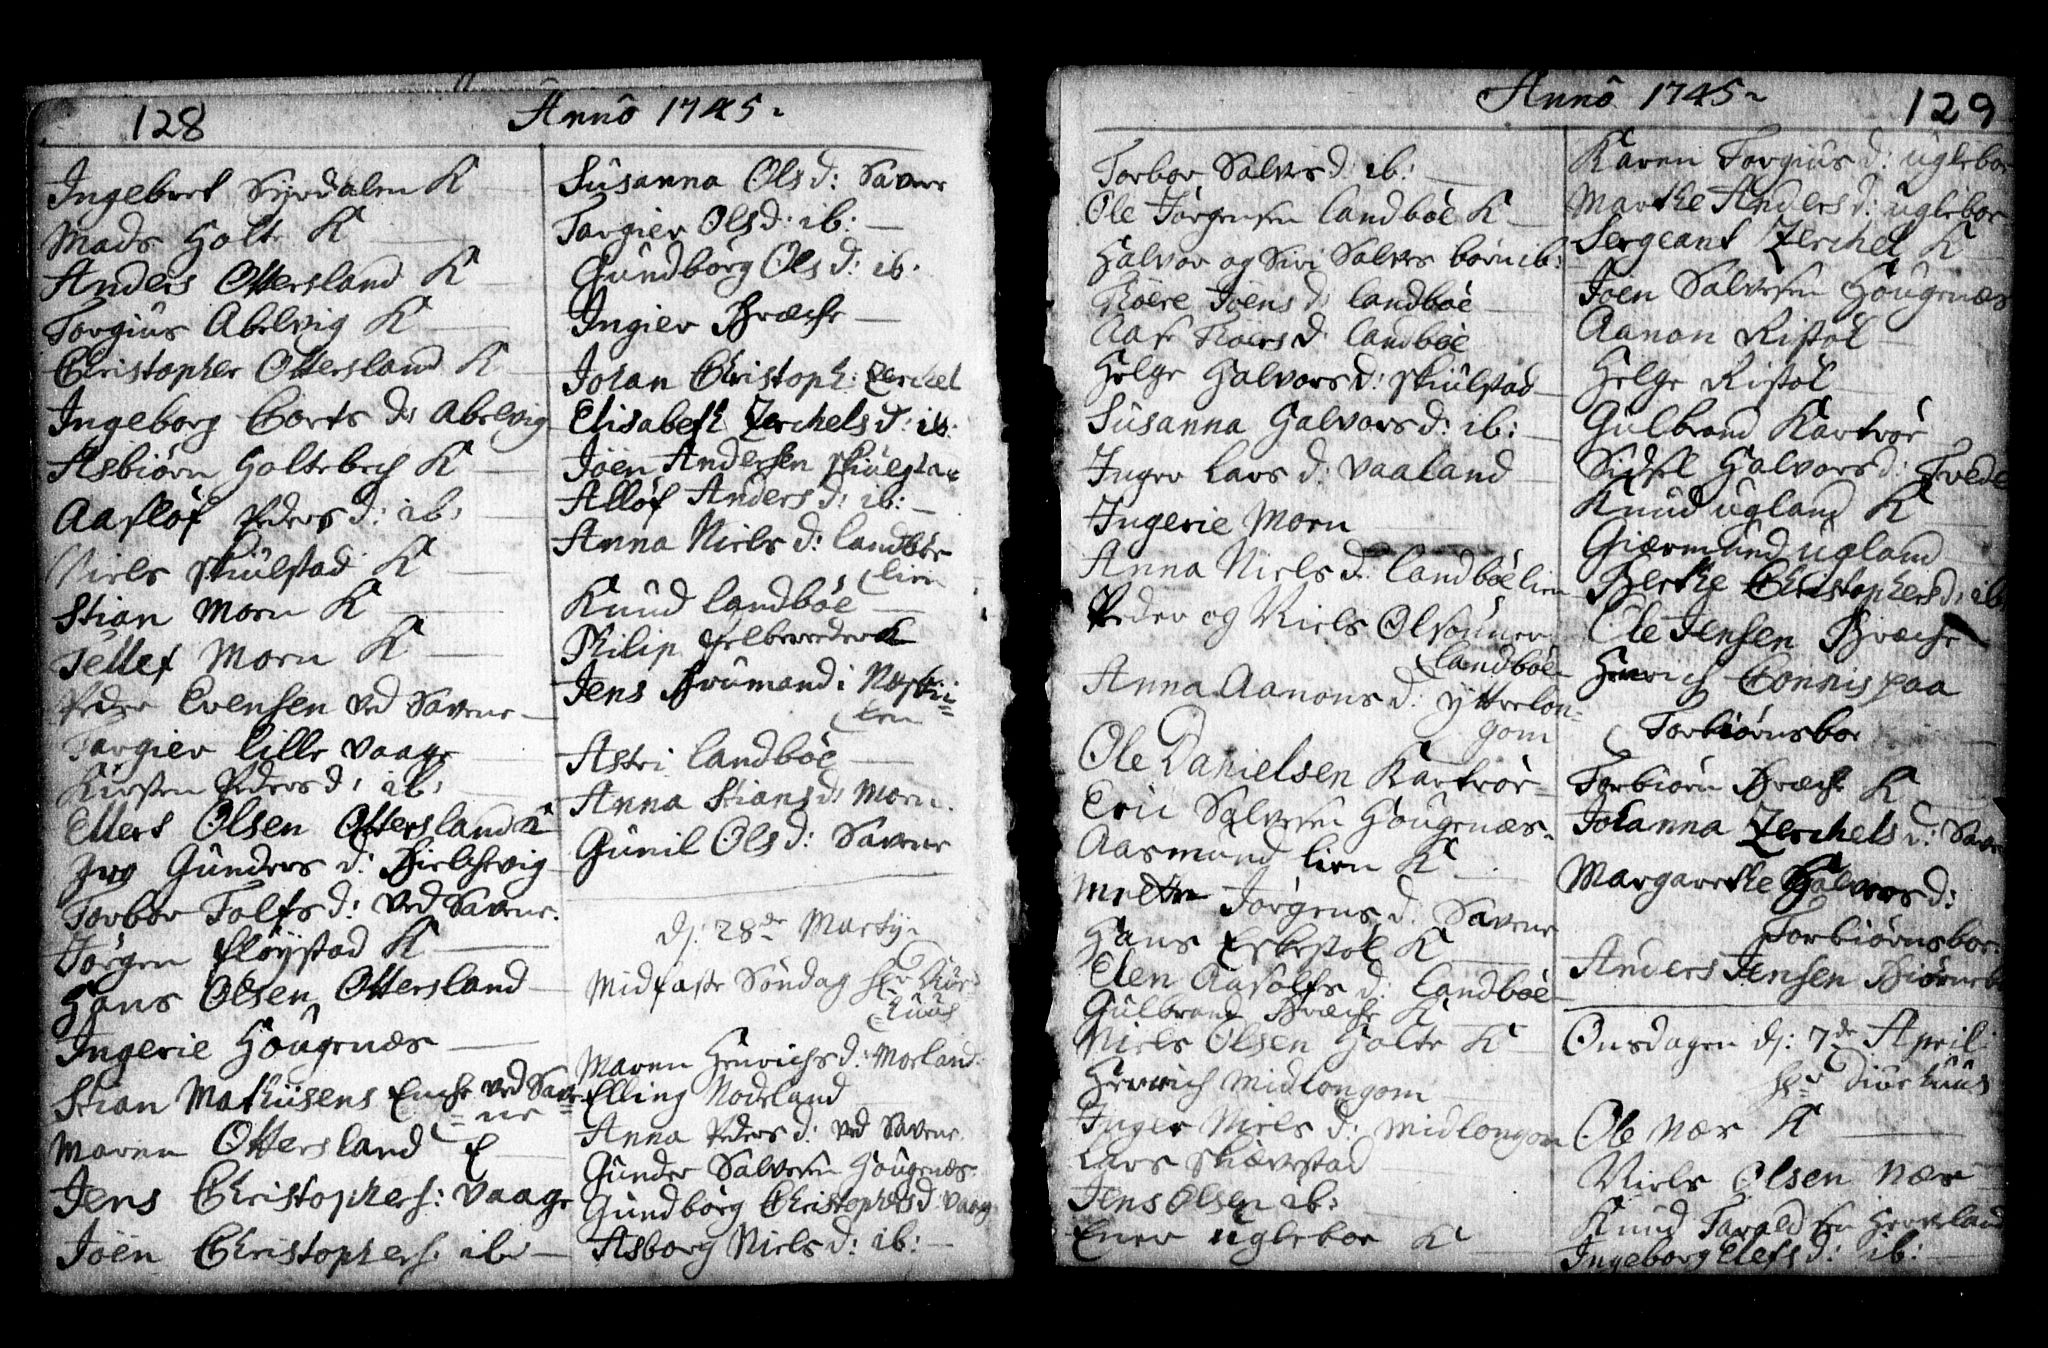 128
Annô 1745
Ingebret Syrdalen K
Mads Holte K
Anders Ottersland K
Torgius Abelvig K
Christopher Ottersland K
Ingeborg Corts d: Abelvig
Asbiørn Holtebech K
Aasløf Peders d: ib:
Niels skiulstad K
Stian Morn K
Tellef Morn K
Peder Evensen ved Savene
Targier lille Vaage
Kirsten Peders d: ib:
Ellert Olsen Ottersland K
Gunders d: Bielchevig
Torbor Tolfs d: ved Savene
Jørgen fløystad K
Hans Olsen Ottersland
Ingerie Hougenæs
Stian Mathiisens Enche ved Save=
=ne
Maren Ottersland E
Jens Christophers: Vaage
Joen Christophers: ib:
Susanna Ols d: Savene
Targier Ols d: ib:
Gundborg Ols d: ib:
Ingier Bræche
Johan Christoph: Zerchel
Elisabeth Zerchels d: ib:
Joen Andersen skiulstad
Alløf Anders d: ib:
Anna Niels d: landbøe
lien
Knud landbøe
Philip K
Jens Brumand i
Astri landbøe
Anna Stians d: Morn
Gunil Ols d: Savene
d: 28de Martij
Midfaste Søndag
Maren Henrichs d: Morland
Elling Nodeland
Anna Peders d: ved Savene
Gunder Salvesen Hougenæs
Gundborg Christophers d: Vaage
Asborg Niels d: ib:
Annô 1745
129
Torbor Salves d: ib:
Ole Jørgensen landbøe K
Halvor og Siri Salves børn ib:
Thoere Joens d: landbøe
Aase Thoers d: landbøe
Helge Halvors d: skiulstad
Susanna Halvors d: ib:
Inger Lars d: Vaaland
Ingerie Morn
Anna Niels d: landbøe lien
Peder og Niels Olsønner
landbøe
Anna Aanons d: yttrelon=
gom
Ole Danielsen Kartrør
Eric Salvesen Hougenæs
Aasmund lien K
Mette Jørgens d: Savene
Hans Eskestøl K
Elen Aasolfs d: Landbøe
Gulbrand Bræche K
Niels Olsen Holte K
Henrich Midlongom
Inger Niels d: Midlongom
Lars skiævestad
Jens Olsen ib:
Ener uglebor K
Karen Torgius d: uglebor
Marthe Anders d: uglebor
Sergeant Zerchel K
Joen Salvesen Hougenæs
Aanon Ristøl
Helge Ristøl
Gulbrand Kartrør
Sidsel Halvors d: Tvede
Knud ugland K
Giermund ugland
Berthe Christophers d: ib:
Ole Jensen Bræche
Henrich Connis paa
Torbiørnsbor
Torbiørn Bræche K
Johanna Zerchels d: Save
Margarethe Halvors d:
Torbiørnsbor
Anders Jensen Biørneb
Onsdagen d: 7de April
Hr Diurhuus
Ole Næs K
Niels Olsen Næs
Knud Taraldsen Herreland
Ingeborg Elefs d: ib: